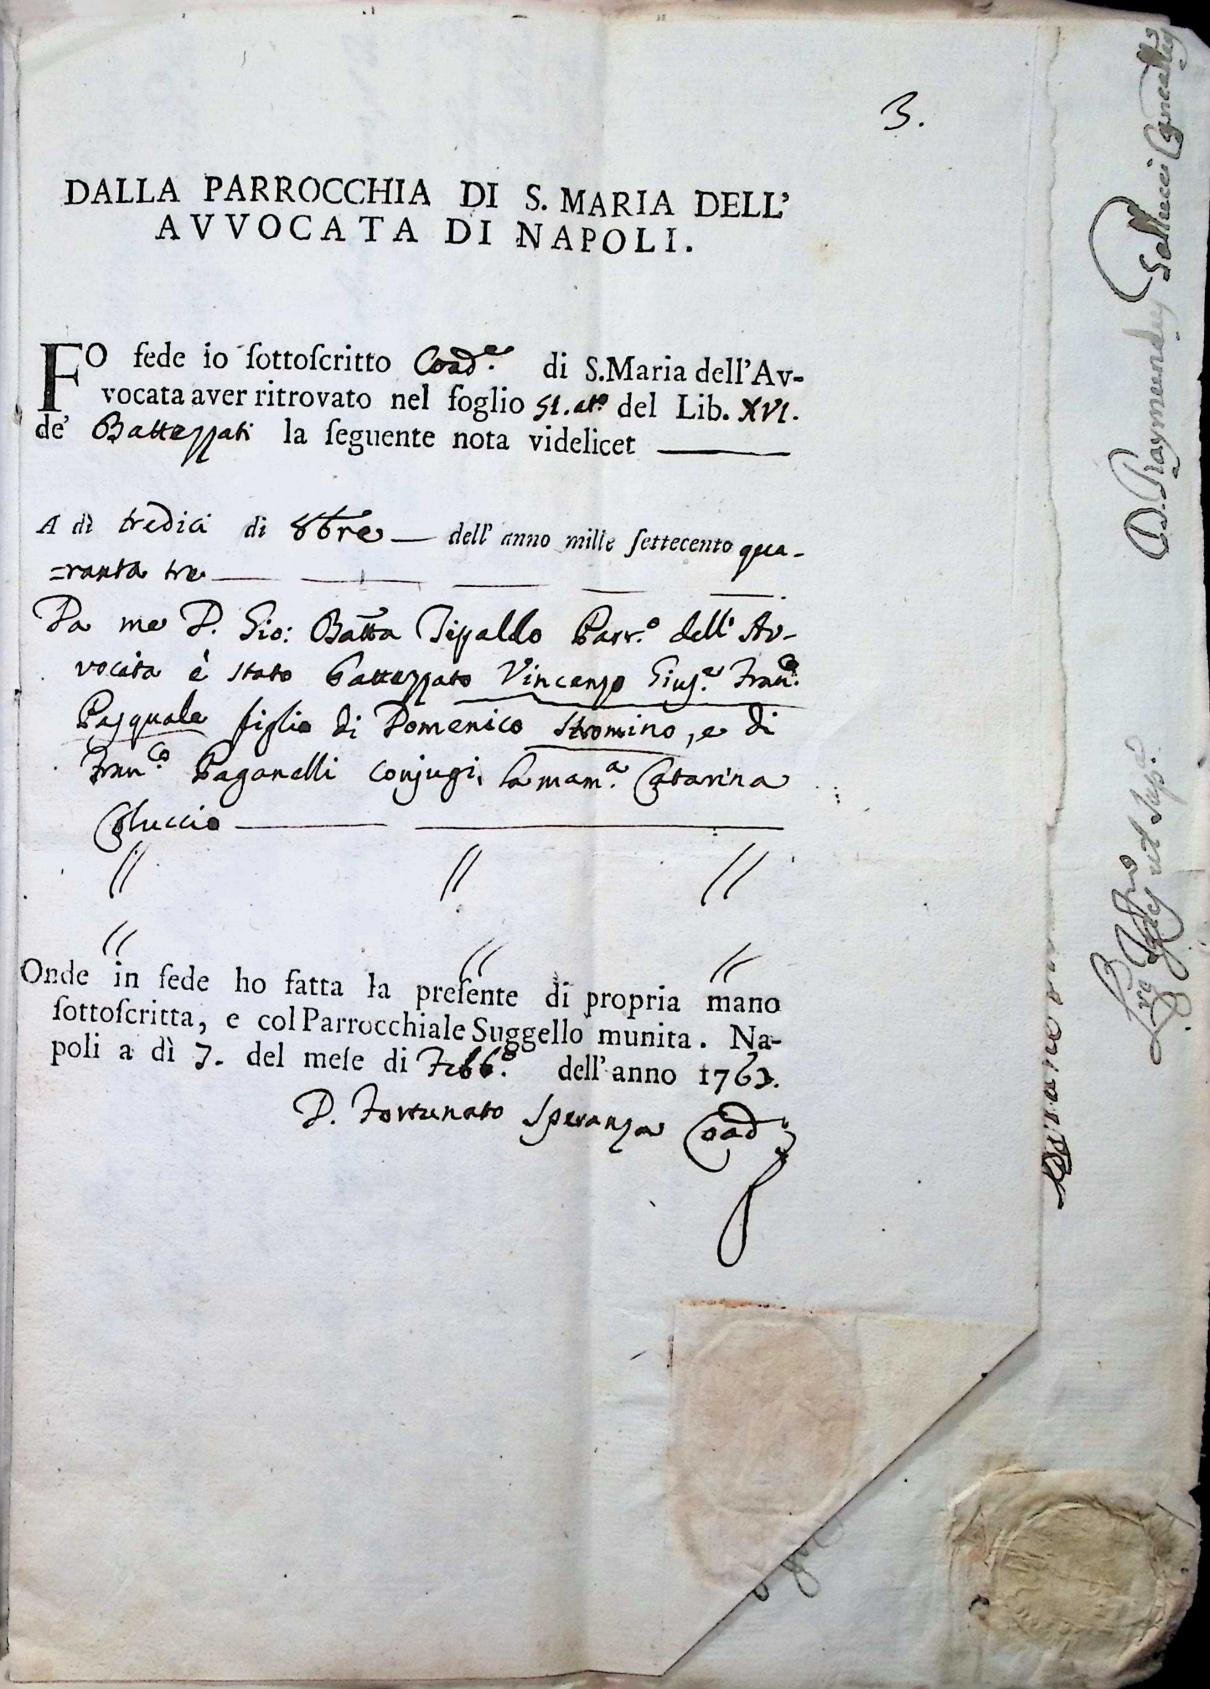 3.
DALLA PARROCCHIA DI S. MARIA DELL'
AVVOCATA DI NAPOLI.
FO fede io ſottoſcritto Coad.e di S.Maria dell'Av-
vocata aver ritrovato nel foglio 51. at.o del Lib. XVI.
de' Battezzati la ſeguente nota videlicet
A dì tredici di 8bre dell' anno mille ſettecento qua-
=ranta tre
Da me D. Gio: Batta Tipaldo Parr.o dell' Av-
vocata è stato battezzato Vincenzo Gius.e Fran.co
Pasquale figlio di Domenico Stromino, e di
Fran.ca Paganelli conjugi, la mam.a Catarina
Coluccio
Onde in fede ho fatta la preſente di propria mano
ſottoſcritta, e col Parrocchiale Suggello munita. Na-
poli a dì 7. del meſe di Febb.o dell' anno 1763.
D. Fortunato Speranza Coad.
D. Raymundus Gallucci
ut sup.a